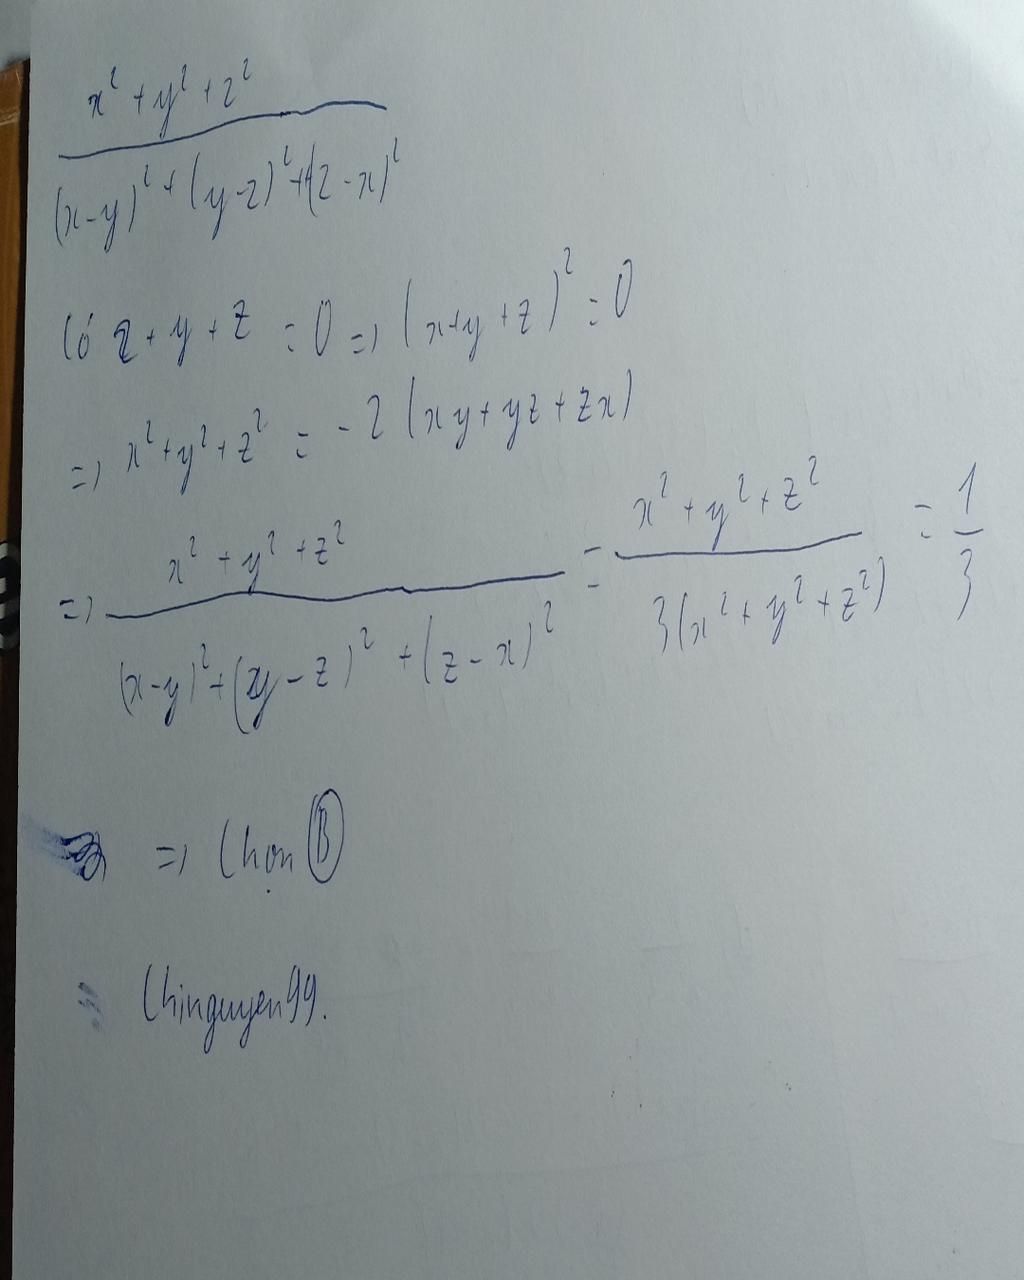 x² + y² + z²
(x-y)² + (y-z)² + (z-x)²
Có x + y + z = 0 => (x+y+z)² = 0
=> x² + y² + z² = -2(xy + yz + zx)
=> x² + y² + z² / (x-y)² + (y-z)² + (z-x)² = x² + y² + z² / 3(x² + y² + z²) = 1/3
=> Chọn B
Chinguyen99.